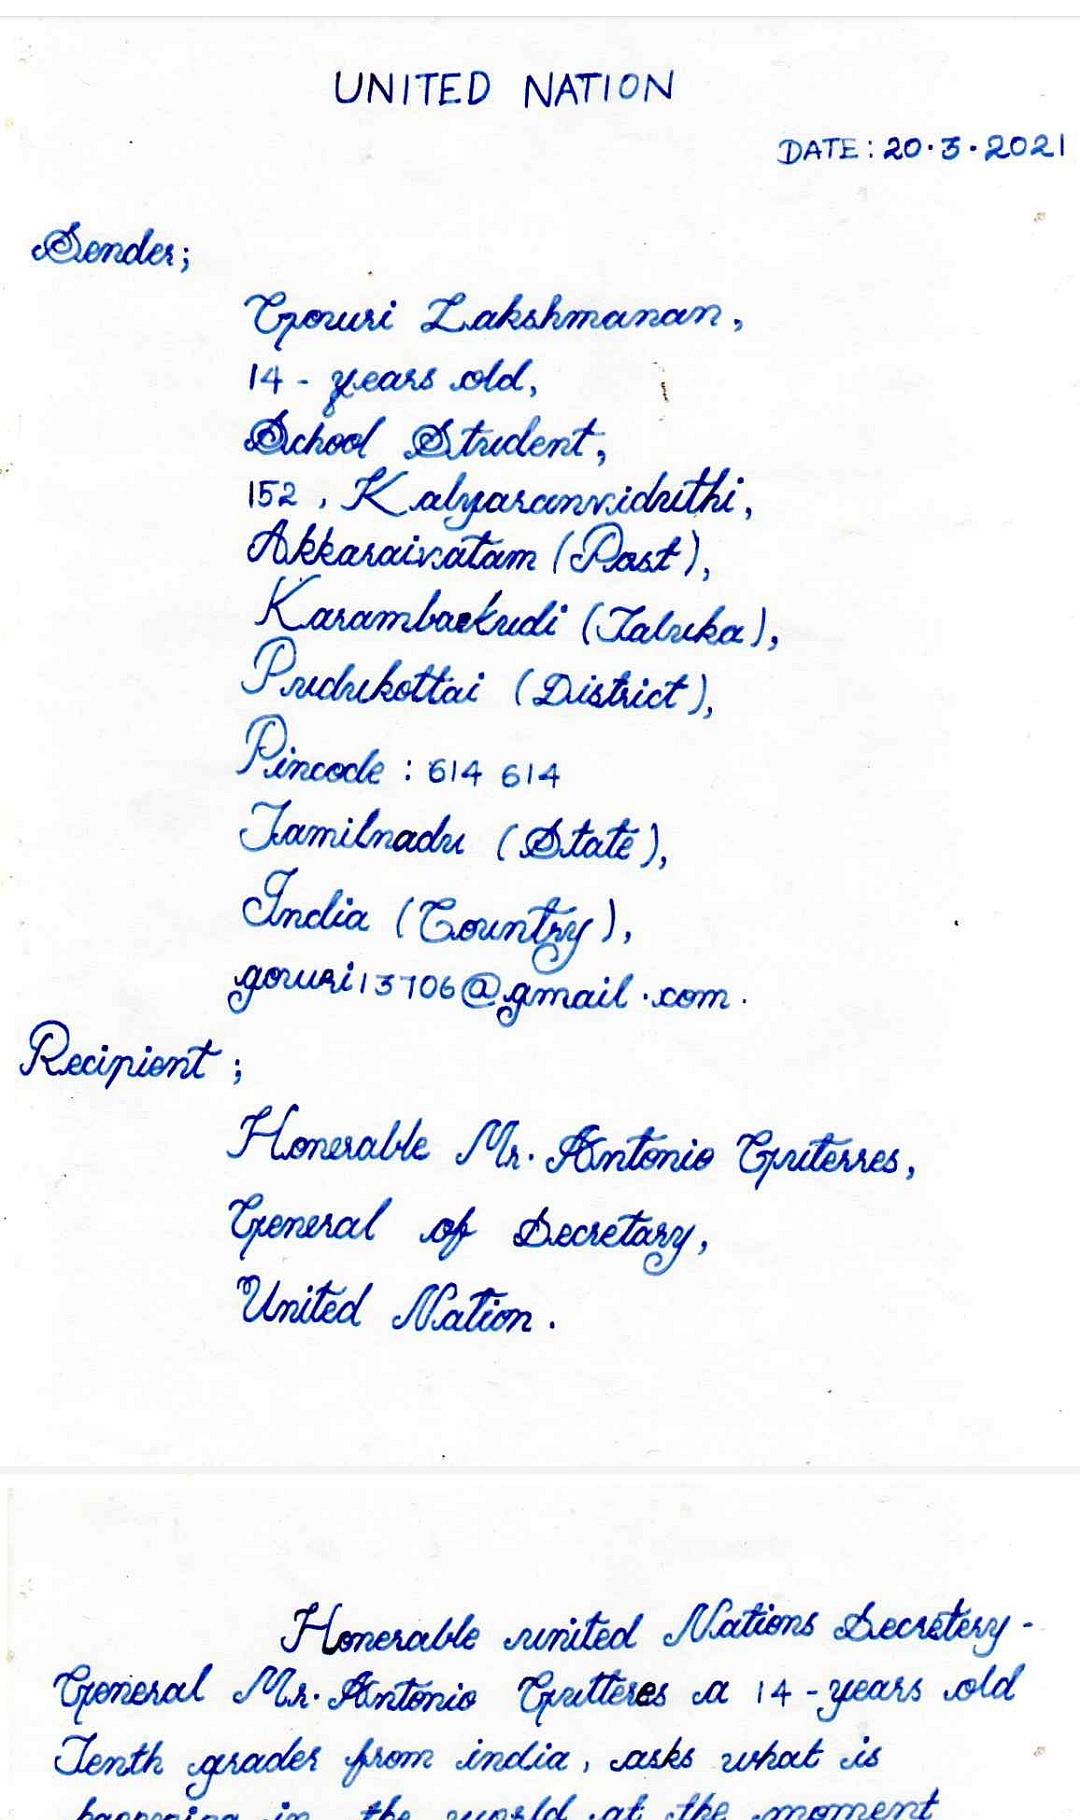 UNITED NATION
DATE: 20.3.2021
Sender;
Gowri Lakshmanan,
14 - years old,
School Student,
152, Kalyaranviduthi,
Akkaraivatam (Post),
Karambackudi (Taluka),
Pudukottai (District),
Pincode : 614 614
Tamilnadu (State),
India (Country),
gowri13706@gmail.com.
Recipient ;
Honerable Mr. Antonio Guterres,
General of Secretary,
United Nation.
Honerable united Nations Secretery -
General Mr. Antonio Gutteres a 14 - years old
Tenth grader from india, asks what is
happening in the world at the moment